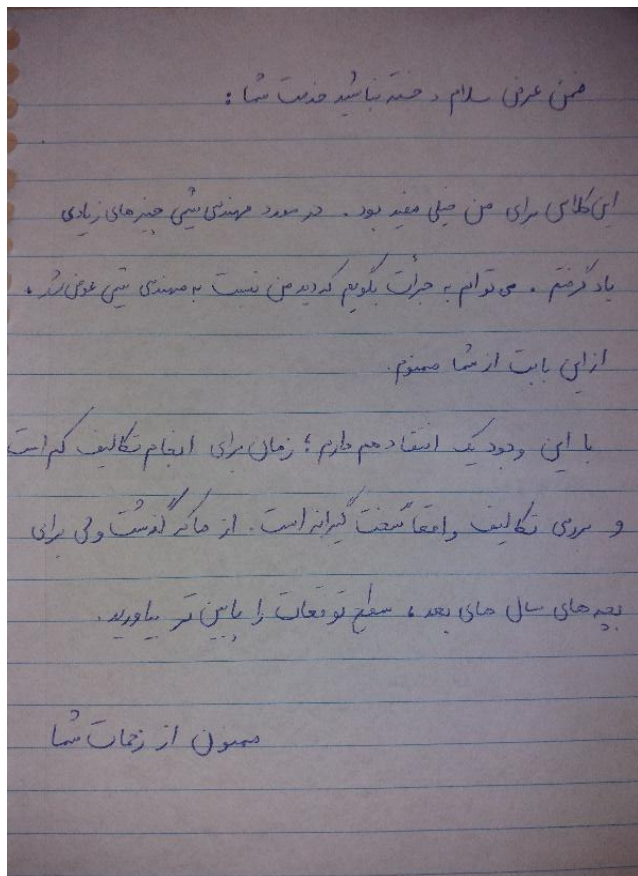 ضمن عرض سلام و خسته نباشید خدمت شما :
این کلاس برای من خیلی مفید بود . در مورد مهندسی شیمی چیزهای زیادی
یاد گرفتم . می توانم به جرأت بگویم که دید من نسبت به مهندسی شیمی عوض شد .
از این بابت از شما ممنونم .
با این وجود یک انتقاد هم دارم ؛ زمان برای انجام تکالیف کم است
و بررسی تکالیف واقعاً سخت گیرانه است . از ما که گذشت ولی برای
بچه های سال های بعد ، سطح توقعات را پایین تر بیاورید .
ممنون از زحمات شما